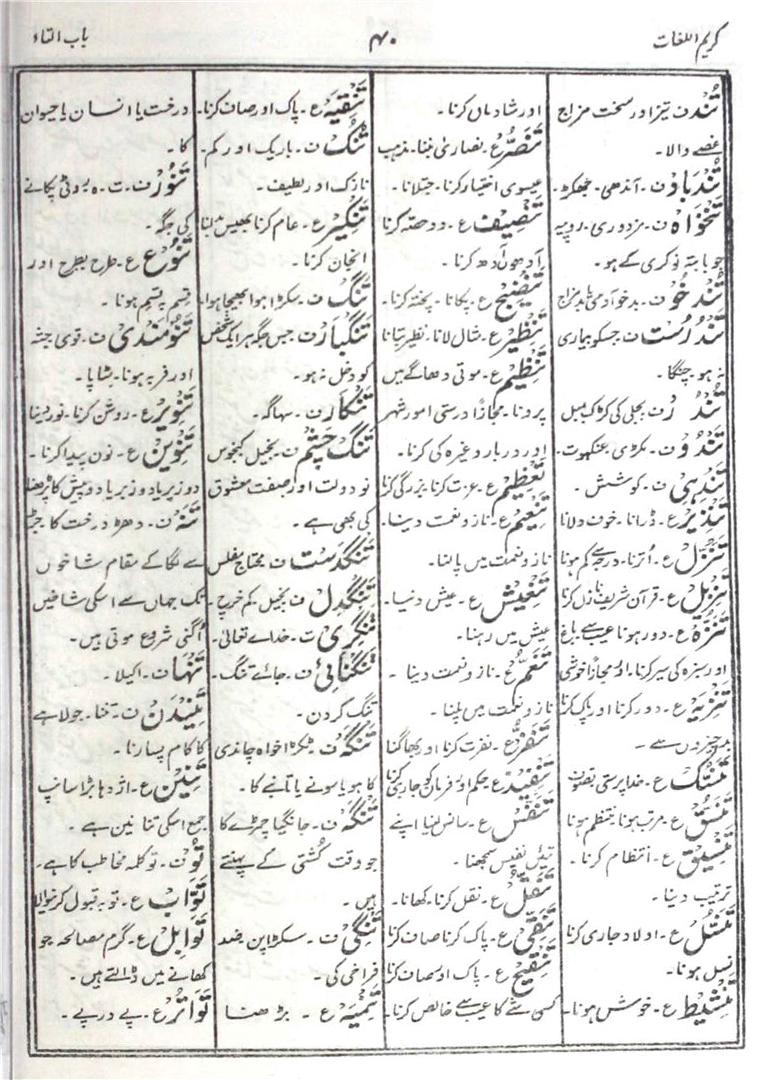 کریم اللغات
۴۰
باب التاء
تُند ف تیز اور سخت مزاج
غصے والا۔
تُندباد ف۔ آندھی۔ جھکڑ۔
تنخواہ ف۔ مزدوری۔ روپیہ
جو بابتہ نوکری کے ہو۔
تُندخو ف۔ بدخو آدمی بدمزاج
تندرست ف جسکو بیماری
نہ ہو چنگا۔
تُندر ف بجلی کی کڑک
تندو ف۔ مکڑی عنکبوت۔
تندہی ف۔ کوشش۔
تنذیر ع۔ ڈرانا۔ خوف دلانا
تنزّل ع۔ اُترنا۔ درجے سے کم ہونا
تنزیل ع۔ قرآن شریف نازل کرنا
تنزّہ ع۔ دور ہونا عیب سے باغ
اور سبزہ کی سیر کرنا۔ اور مجازاً خوشی
تنزیہ ع۔ دور کرنا اور پاک کرنا
چیزوں سے۔
تنسّک ع۔ خدا پرستی
تنسّق ع۔ مرتب ہونا منتظم ہونا
تنسیق ع۔ انتظام کرنا۔
ترتیب دینا۔
تنسّل ع۔ اولاد جاری کرنا
نسل ہونا۔
تنشیط ع۔ خوش ہونا۔
اور شادماں کرنا۔
تنصّر ع۔ نصاریٰ بننا۔ مذہب
عیسوی اختیار کرنا۔ جتلانا۔
تنصیف ع۔ دو حصہ کرنا
آدھوں آدھ کرنا۔
تنضیج ع۔ پکانا۔ پختہ کرنا۔
تنظیر ع۔ مثال لانا۔ نظیر بتانا
تنظیم ع۔ موتی دھاگے میں
پرونا۔ مجازاً درستی امور شہر
اور دربار وغیرہ کی کرنا۔
تعظیم ع۔ عزت کرنا۔ بزرگی کرنا
تنعیم ع۔ ناز و نعمت دینا۔
ناز و نعمت میں پالنا۔
تعیش ع۔ عیش دنیا۔
عیش میں رہنا۔
تنعّم ع۔ ناز و نعمت دینا۔
ناز و نعمت میں پلنا۔
تنفّر ع۔ نفرت کرنا اور بھاگنا
تنفیذ ع حکم اور فرمان کو جاری کرنا
تنفّس ع۔ سانس لینا اپنے
تئیں نفیس سمجھنا۔
تنقّل ع۔ نقل کرنا۔ کھانا۔
تنقّی ع۔ پاک کرنا صاف کرنا
تنقیح ع۔ پاک اور صاف کرنا
کسی شے کا عیب سے خالص کرنا۔
تنقیہ ع۔ پاک اور صاف کرنا۔
تنک ف۔ باریک اور کم۔
نازک اور لطیف۔
تنکیر ع۔ عام کرنا بھیس بدلنا
انجان کرنا۔
تنگ ف۔ سکڑا ہوا بھچا ہوا۔
تنگبار ف جس جگہ ہر ایک شخص
کو دخل نہ ہو۔
تنکار ف۔ سہاگہ۔
تنگ چشم ف۔ بخیل کنجوس
نو دولت اور صفت معشوق
کی بھی ہے۔
تنگدست ف محتاج مفلس
تنگدل ف بخیل کم خرچ۔
تنگری ت۔ خدائے تعالیٰ۔
تنگنائی ف۔ جائے تنگ۔
تنگ کردن۔
تنگہ ف۔ ٹکڑا خواہ چاندی
کا ہو یا سونے یا تانبے کا۔
تنکہ ف۔ جانگیا چمڑے کا
جو وقت کُشتی کے پہنتے
ہیں۔
تنگی ف۔ سکڑا پن ضد
فراخی کی۔
تنمیہ ع۔ بڑھنا
درخت یا انسان یا حیوان
کا۔
تنور ف۔ ت۔ ہ روٹی پکانے
کی جگہ۔
تنوّع ع۔ طرح بطرح اور
قسم بقسم ہونا۔
تنومندی ف۔ قوی جثہ
اور فربہ ہونا۔ مٹاپا۔
تنویر ع۔ روشن کرنا۔ نور دینا
تنوین ع۔ نون پیدا کرنا۔
دو زبر یا دو زیر یا دو پیش کا پڑھنا
تنہ ف۔ دھڑ درخت کا جڑ
سے لگا کے مقام شاخوں
تک جہاں سے اسکی شاخیں
اُگنی شروع ہوتی ہیں۔
تنہا ف۔ اکیلا۔
تنیدن ف۔ تننا۔ جولاہے
کا کام پسارنا۔
تنین ع۔ اژدہا بڑا سانپ
جمع اسکی تنانین ہے۔
تو ف۔ تو کلمہ مخاطب کا ہے۔
توّاب ع۔ توبہ قبول کرنیوالا
توابل ع۔ گرم مصالحہ جو
کھانے میں ڈالتے ہیں۔
تواتر ع۔ پے درپے۔